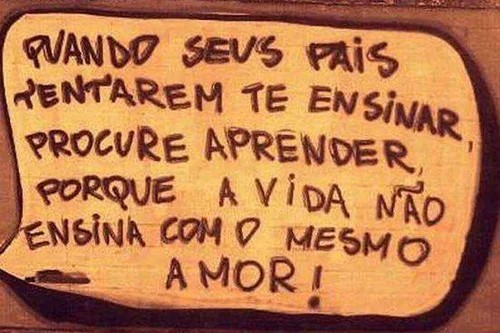 QUANDO SEUS PAIS
TENTAREM TE ENSINAR,
PROCURE APRENDER,
PORQUE A VIDA NÃO
ENSINA COM O MESMO
AMOR!